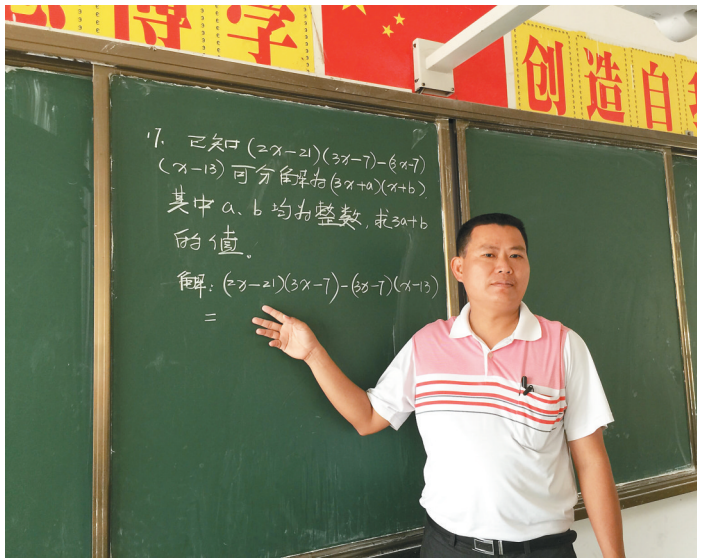 博学
创造自我
17. 已知(2x-21)(3x-7)-(3x-7)
(x-13)可分解为(3x+a)(x+b).
其中a、b均为整数,求3a+b
的值。
解:(2x-21)(3x-7)-(3x-7)(x-13)
=